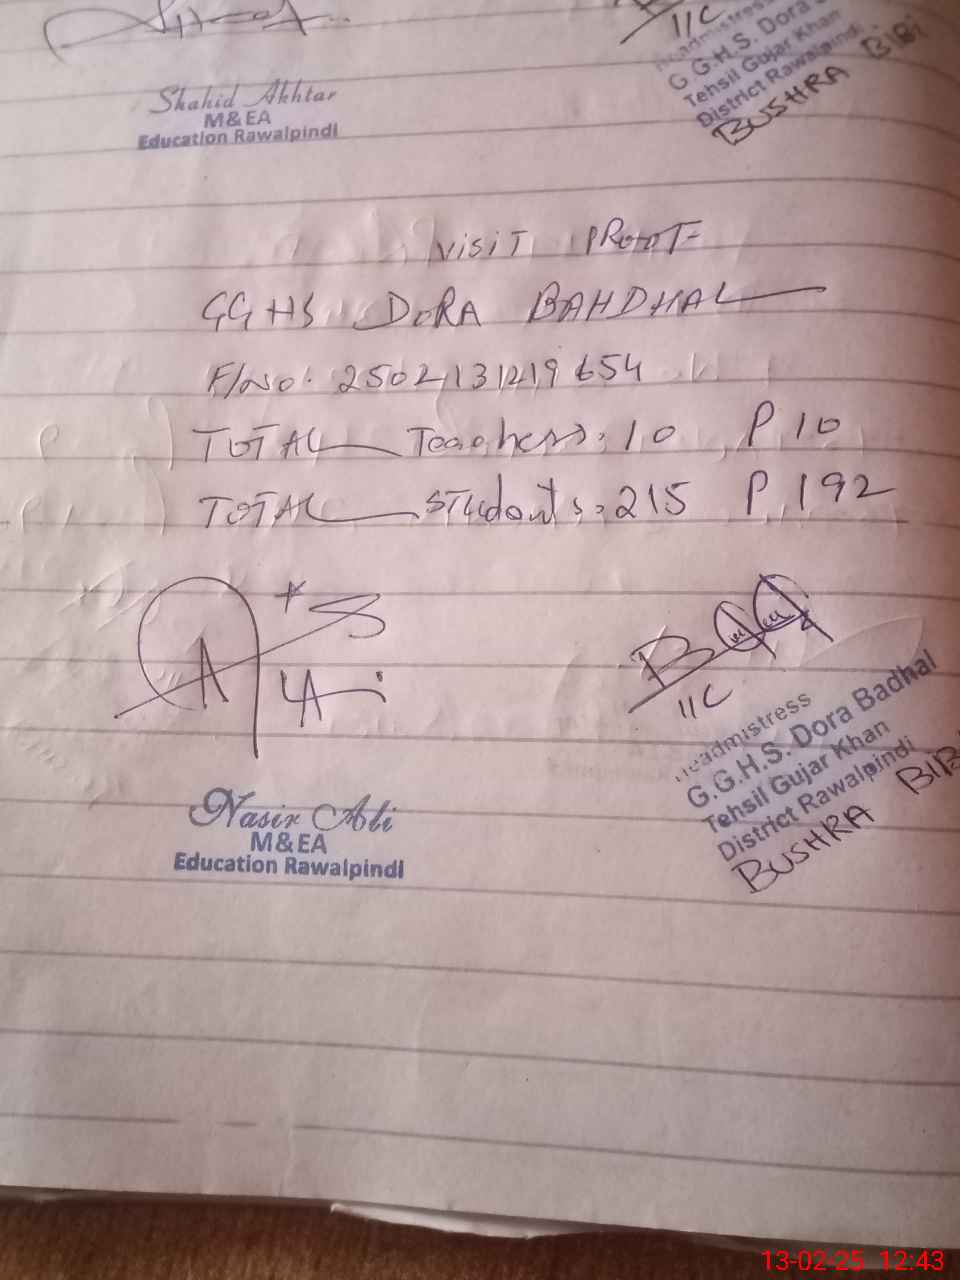 I/C
Headmistress
G.G.H.S. Dora
Tehsil Gujar Khan
District Rawalpindi
BUSHRA BIBI
Shahid Akhtar
M&EA
Education Rawalpindi
VISIT PROOF
GGHS DORA BAHDHAL
F/No: 2502131219654
TOTAL Teachers: 10 P 10
TOTAL Students: 215 P 192
I/C
Headmistress
G.G.H.S. Dora Badhal
Tehsil Gujar Khan
District Rawalpindi
BUSHRA BIB
Nasir Ali
M&EA
Education Rawalpindi
13-02-25 12:43